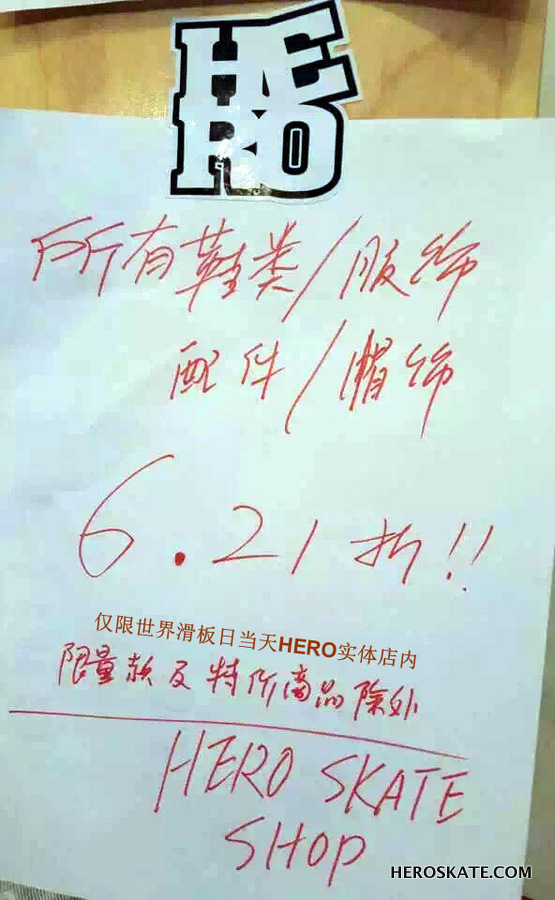 HE
RO
所有鞋类/服饰
配件/帽饰
6.21折!!
仅限世界滑板日当天HERO实体店内
限量款及特价商品除外
HERO SKATE
SHOP
HEROSKATE.COM